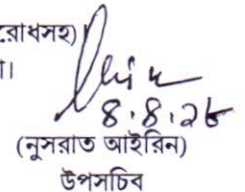 রোধসহ)
৮.৮.২৮
(নুসরাত আইরিন)
উপসচিব